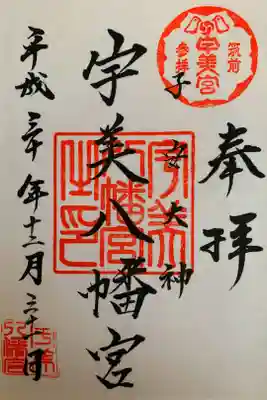 筑前
宇美宮
参拝
奉拝
子安大神
宇美八幡宮
宇美
八幡宮
之印
平成三十年十二月三十一日